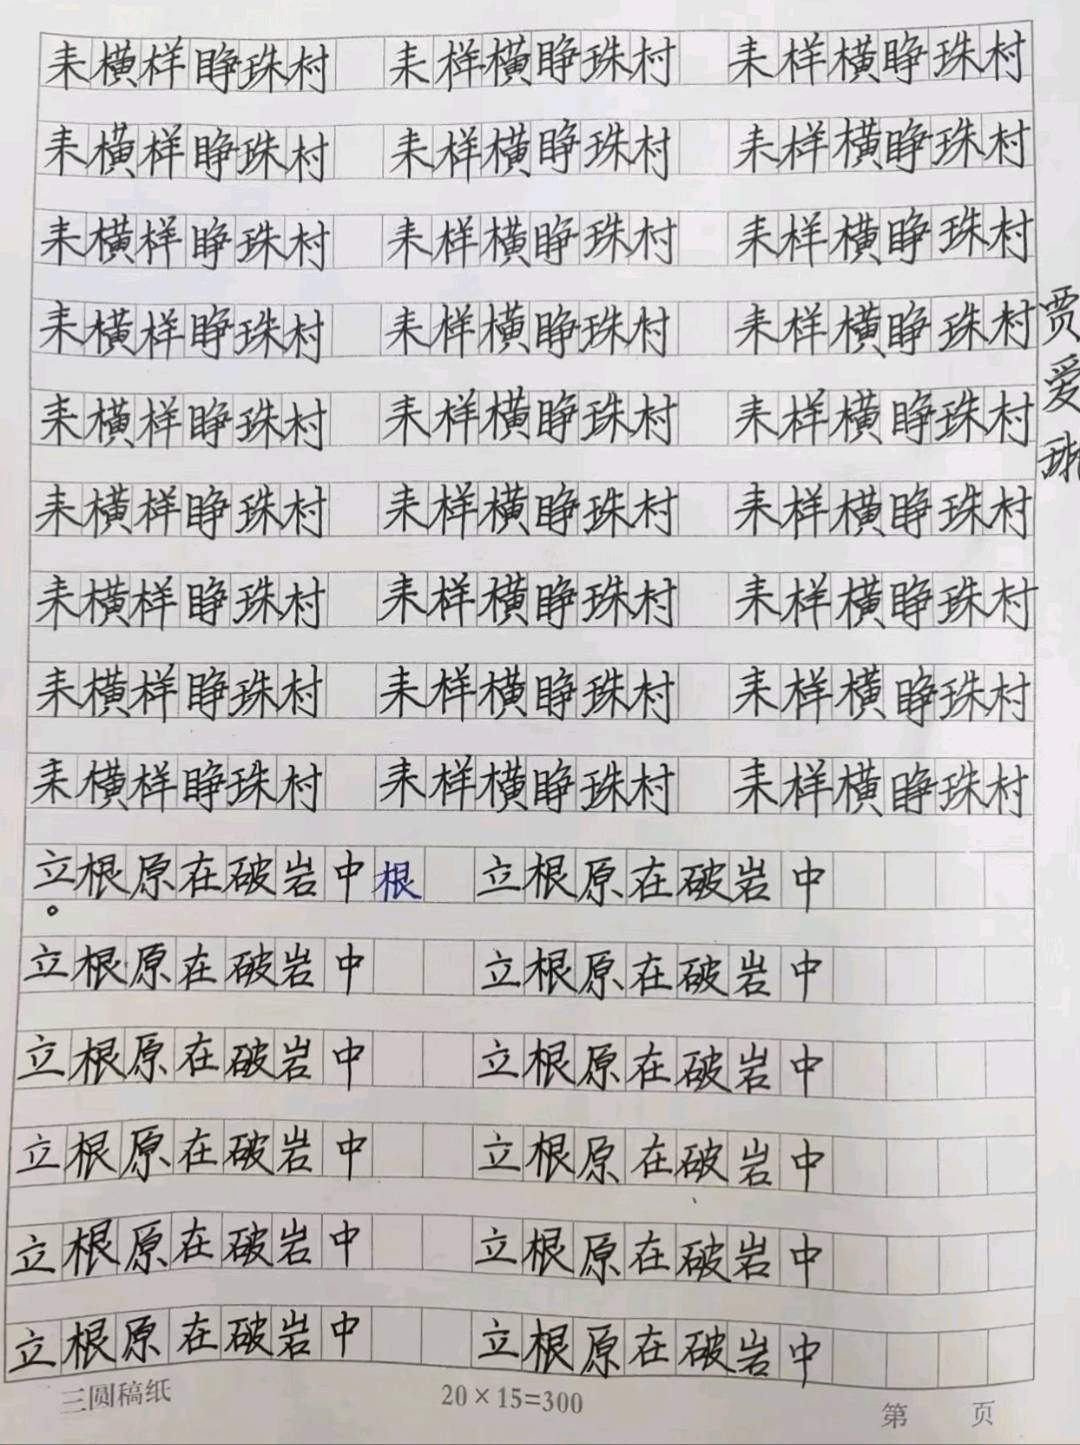 耒横样睁珠村 耒样横睁珠村 耒样横睁珠村
耒横样睁珠村 耒样横睁珠村 耒样横睁珠村
耒横样睁珠村 耒样横睁珠村 耒样横睁珠村
耒横样睁珠村 耒样横睁珠村 耒样横睁珠村
耒横样睁珠村 耒样横睁珠村 耒样横睁珠村
耒横样睁珠村 耒样横睁珠村 耒样横睁珠村
耒横样睁珠村 耒样横睁珠村 耒样横睁珠村
耒横样睁珠村 耒样横睁珠村 耒样横睁珠村
耒横样睁珠村 耒样横睁珠村 耒样横睁珠村
立根原在破岩中根 立根原在破岩中
。
立根原在破岩中 立根原在破岩中
立根原在破岩中 立根原在破岩中
立根原在破岩中 立根原在破岩中
立根原在破岩中 立根原在破岩中
立根原在破岩中 立根原在破岩中
贾爱
三圆稿纸 20×15=300 第 页